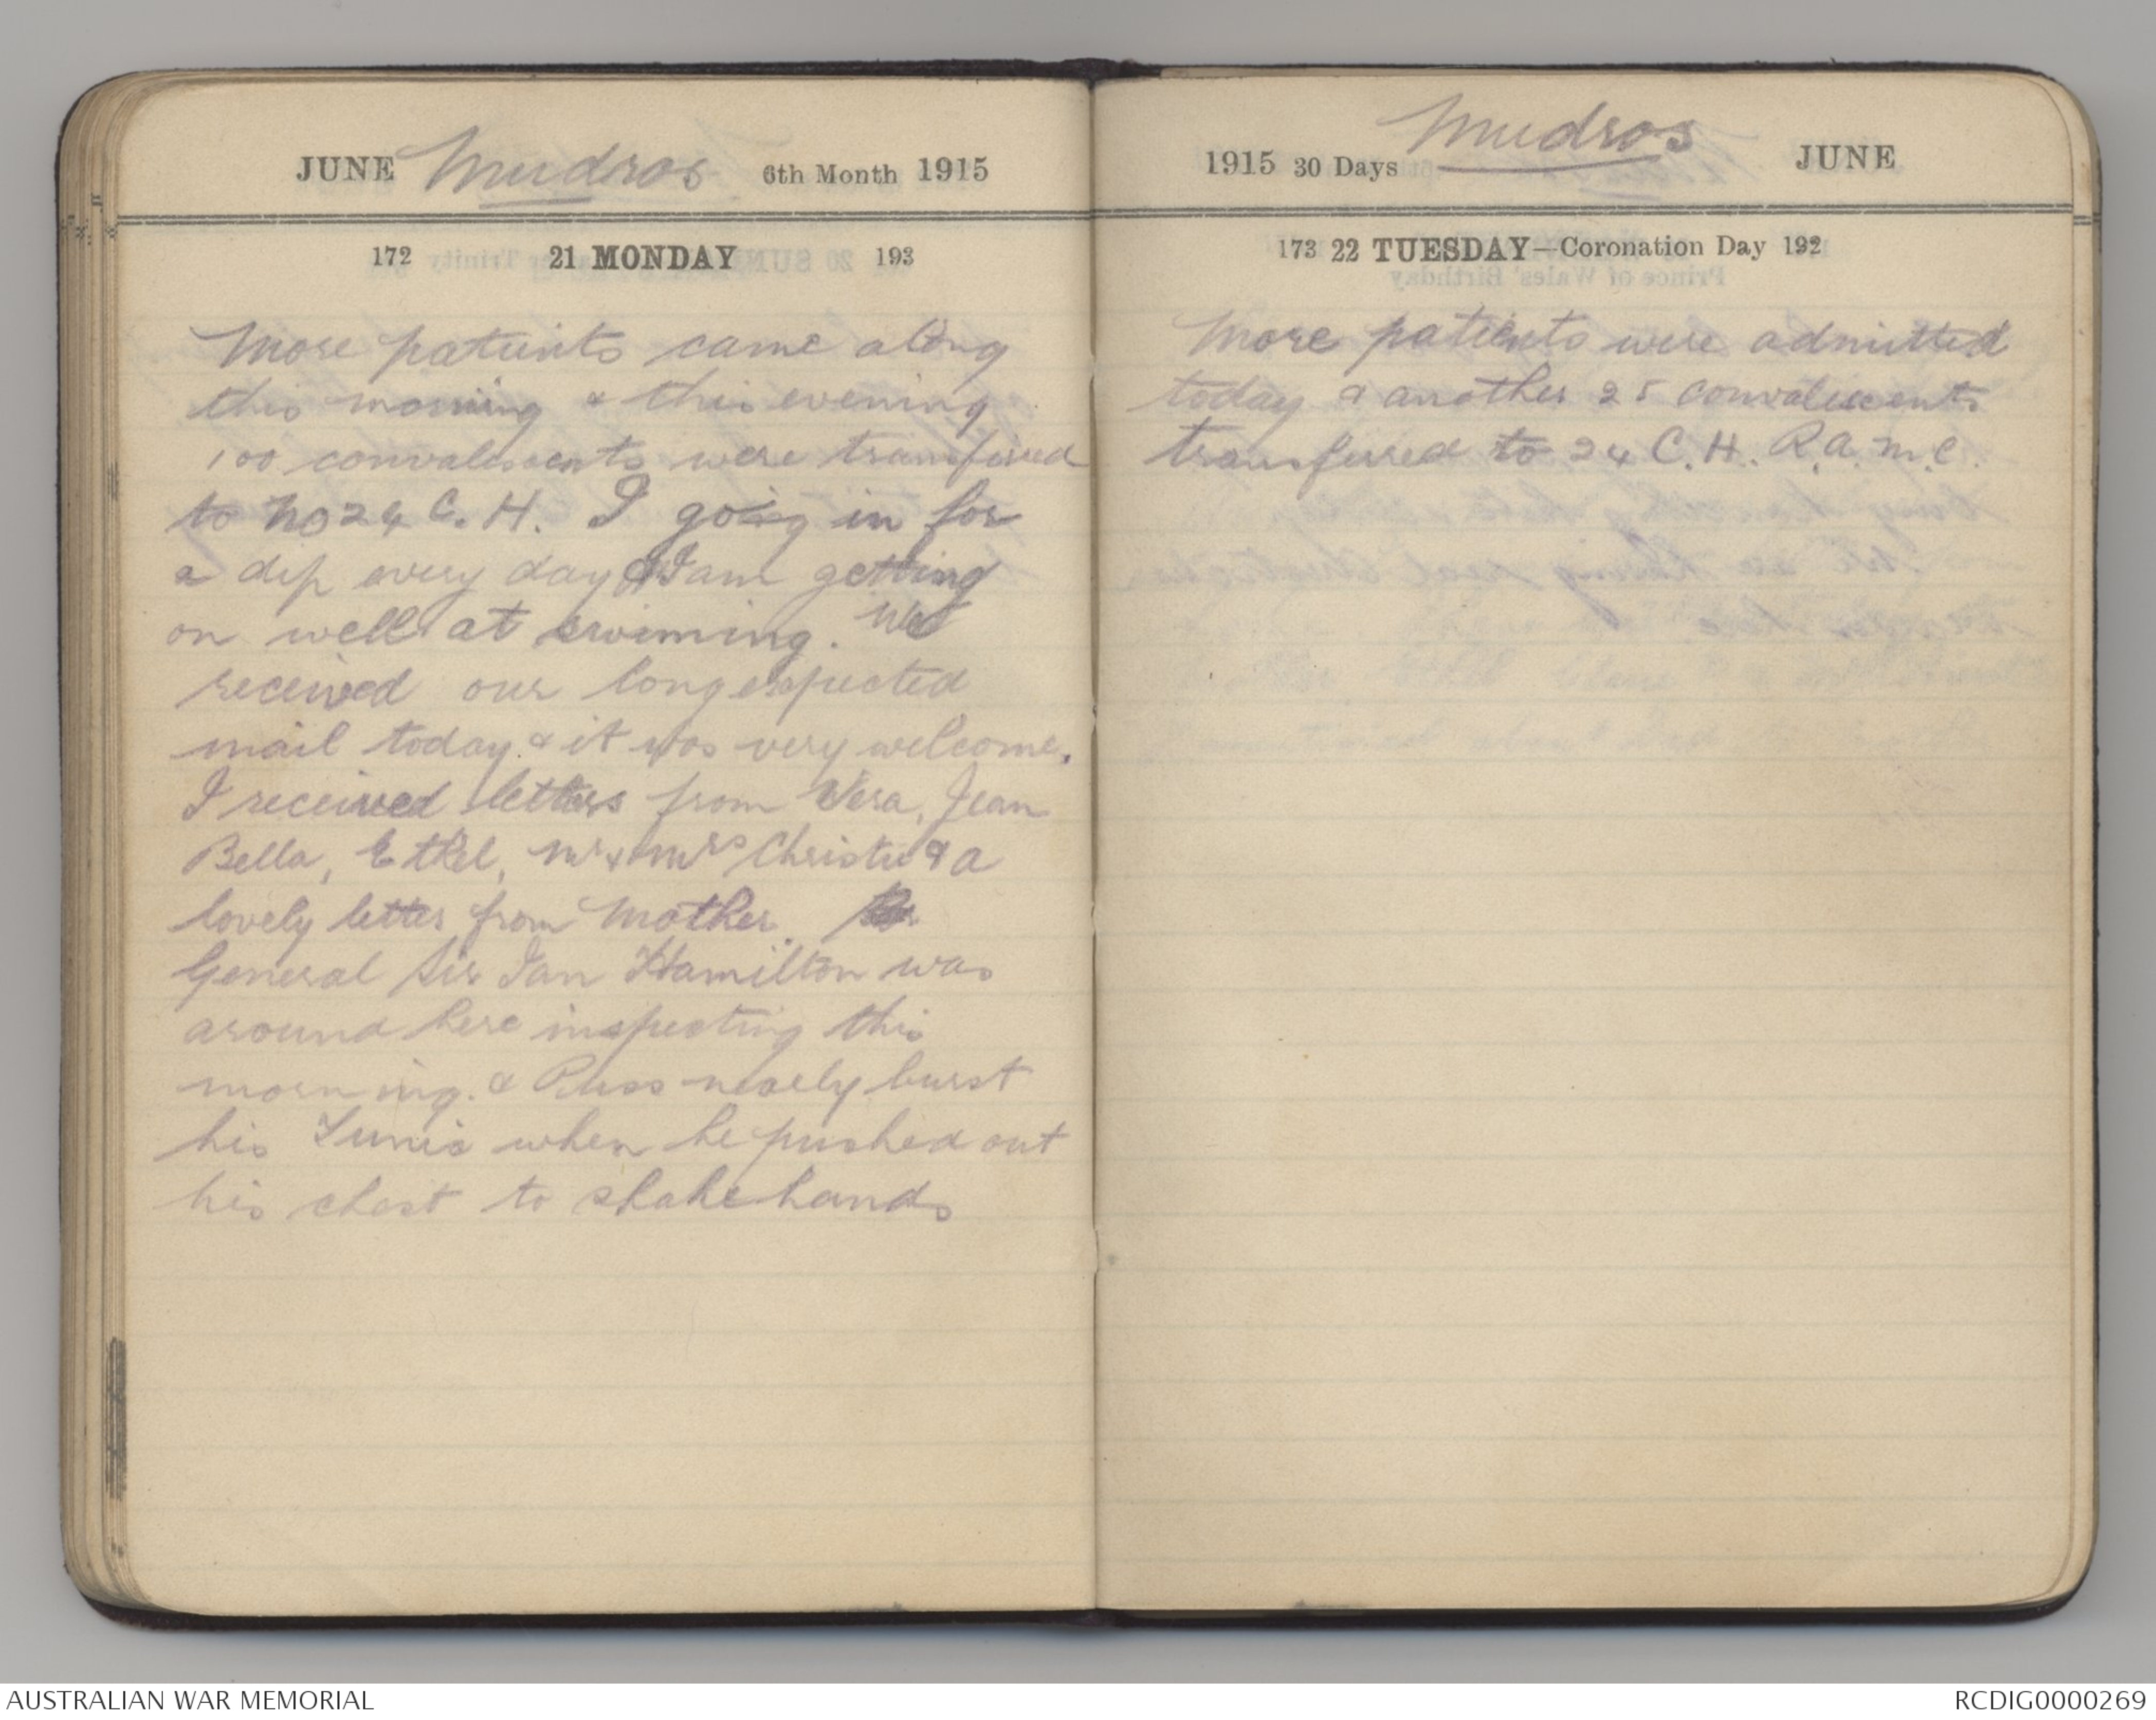 JUNE Mudros 6th Month 1915
172 21 MONDAY 193
More patients came along
this morning & this evening
100 convalescents were transfered
to No 24 C. H. I going in for
a dip every day & I am getting
on well at swiming. We
received our long expected
mail today. & it was very welcome.
I received letters from Vera, Jean
Bella, Ethel, Mr & Mrs Christie & a
lovely letter from Mother.
General Sir Ian Hamilton was
around here inspecting this
morning. & Russ nearly burst
his Tunic when he pushed out
his chest to shake hands
1915 30 Days Mudros JUNE
173 22 TUESDAY—Coronation Day 192
More patients were admitted
today & another 25 convalescents
transfered to 24 C. H. R.A.M.C.
AUSTRALIAN WAR MEMORIAL
RCDIG0000269